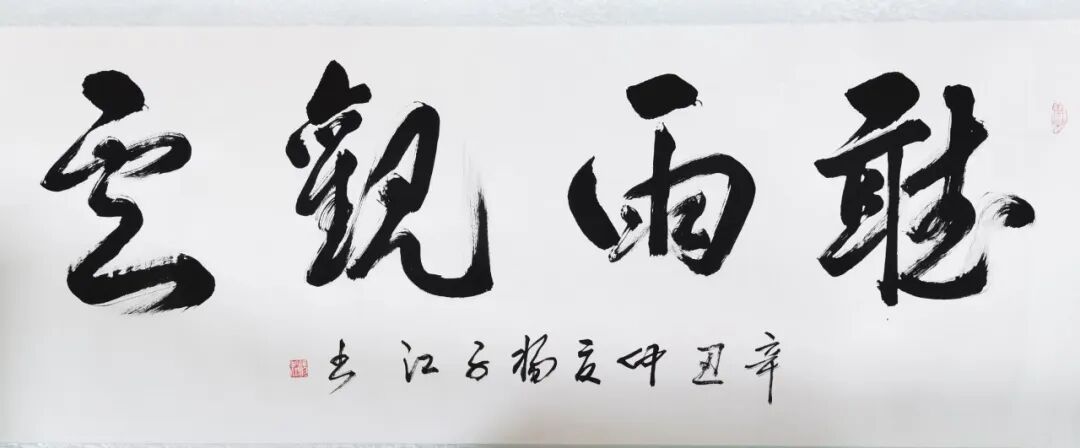 聽雨觀雲
辛丑仲夏楊子江書